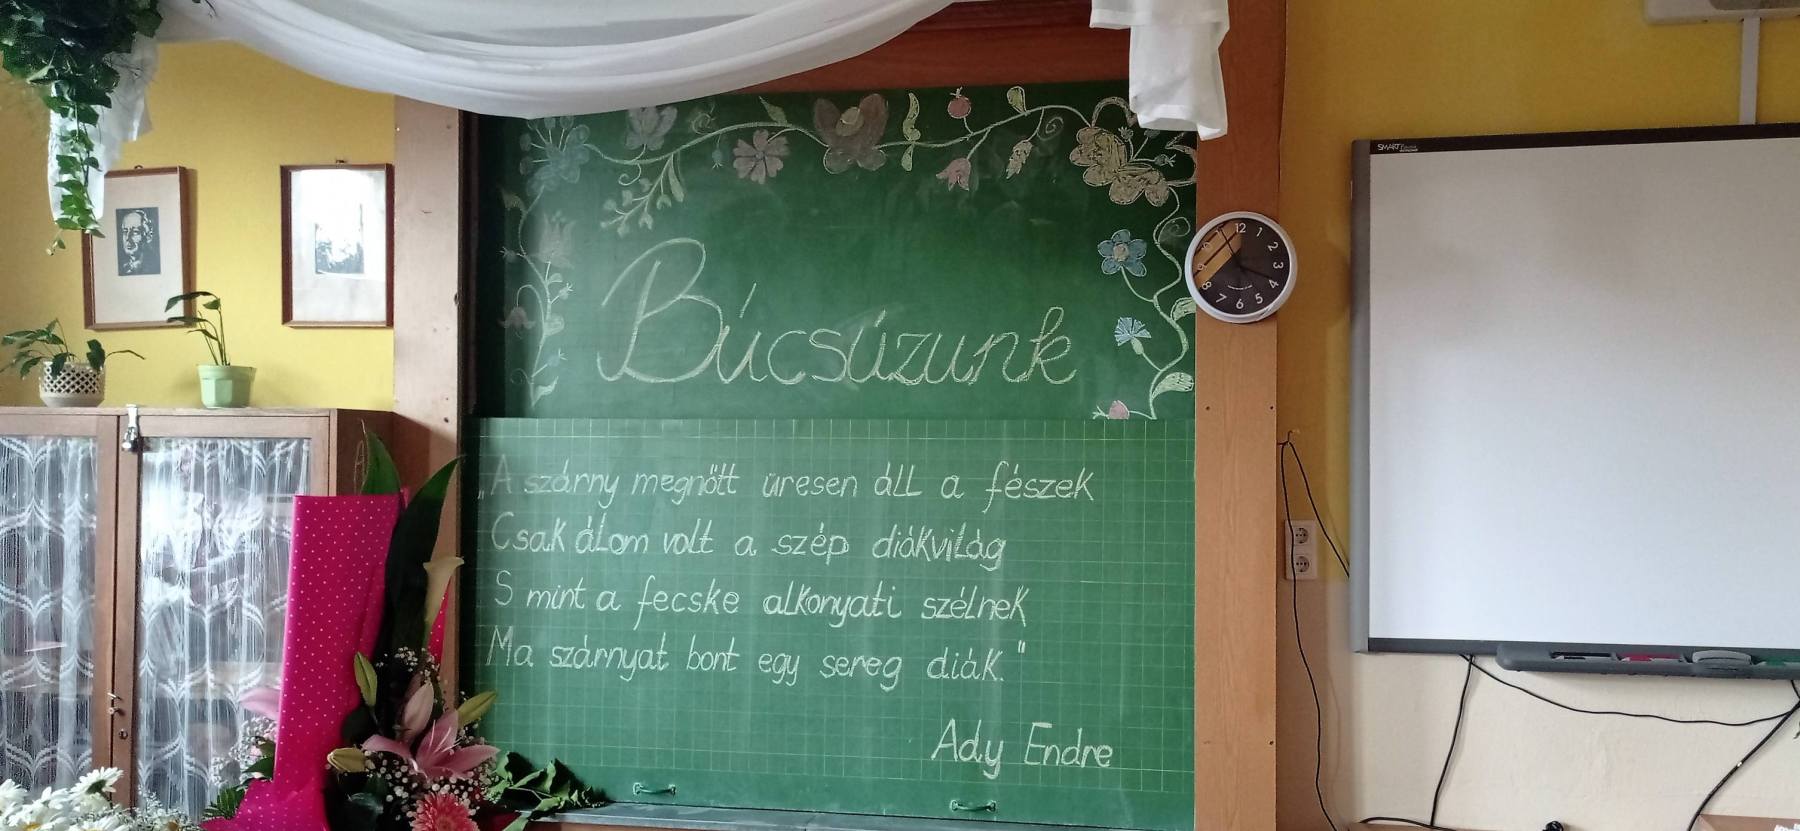 Búcsúzunk
„A szárny megnőtt üresen áll a fészek
Csak álom volt a szép diákvilág
S mint a fecske alkonyati szélnek
Ma szárnyat bont egy sereg diák."
Ady Endre
12
1
2
3
4
5
6
7
8
SMART